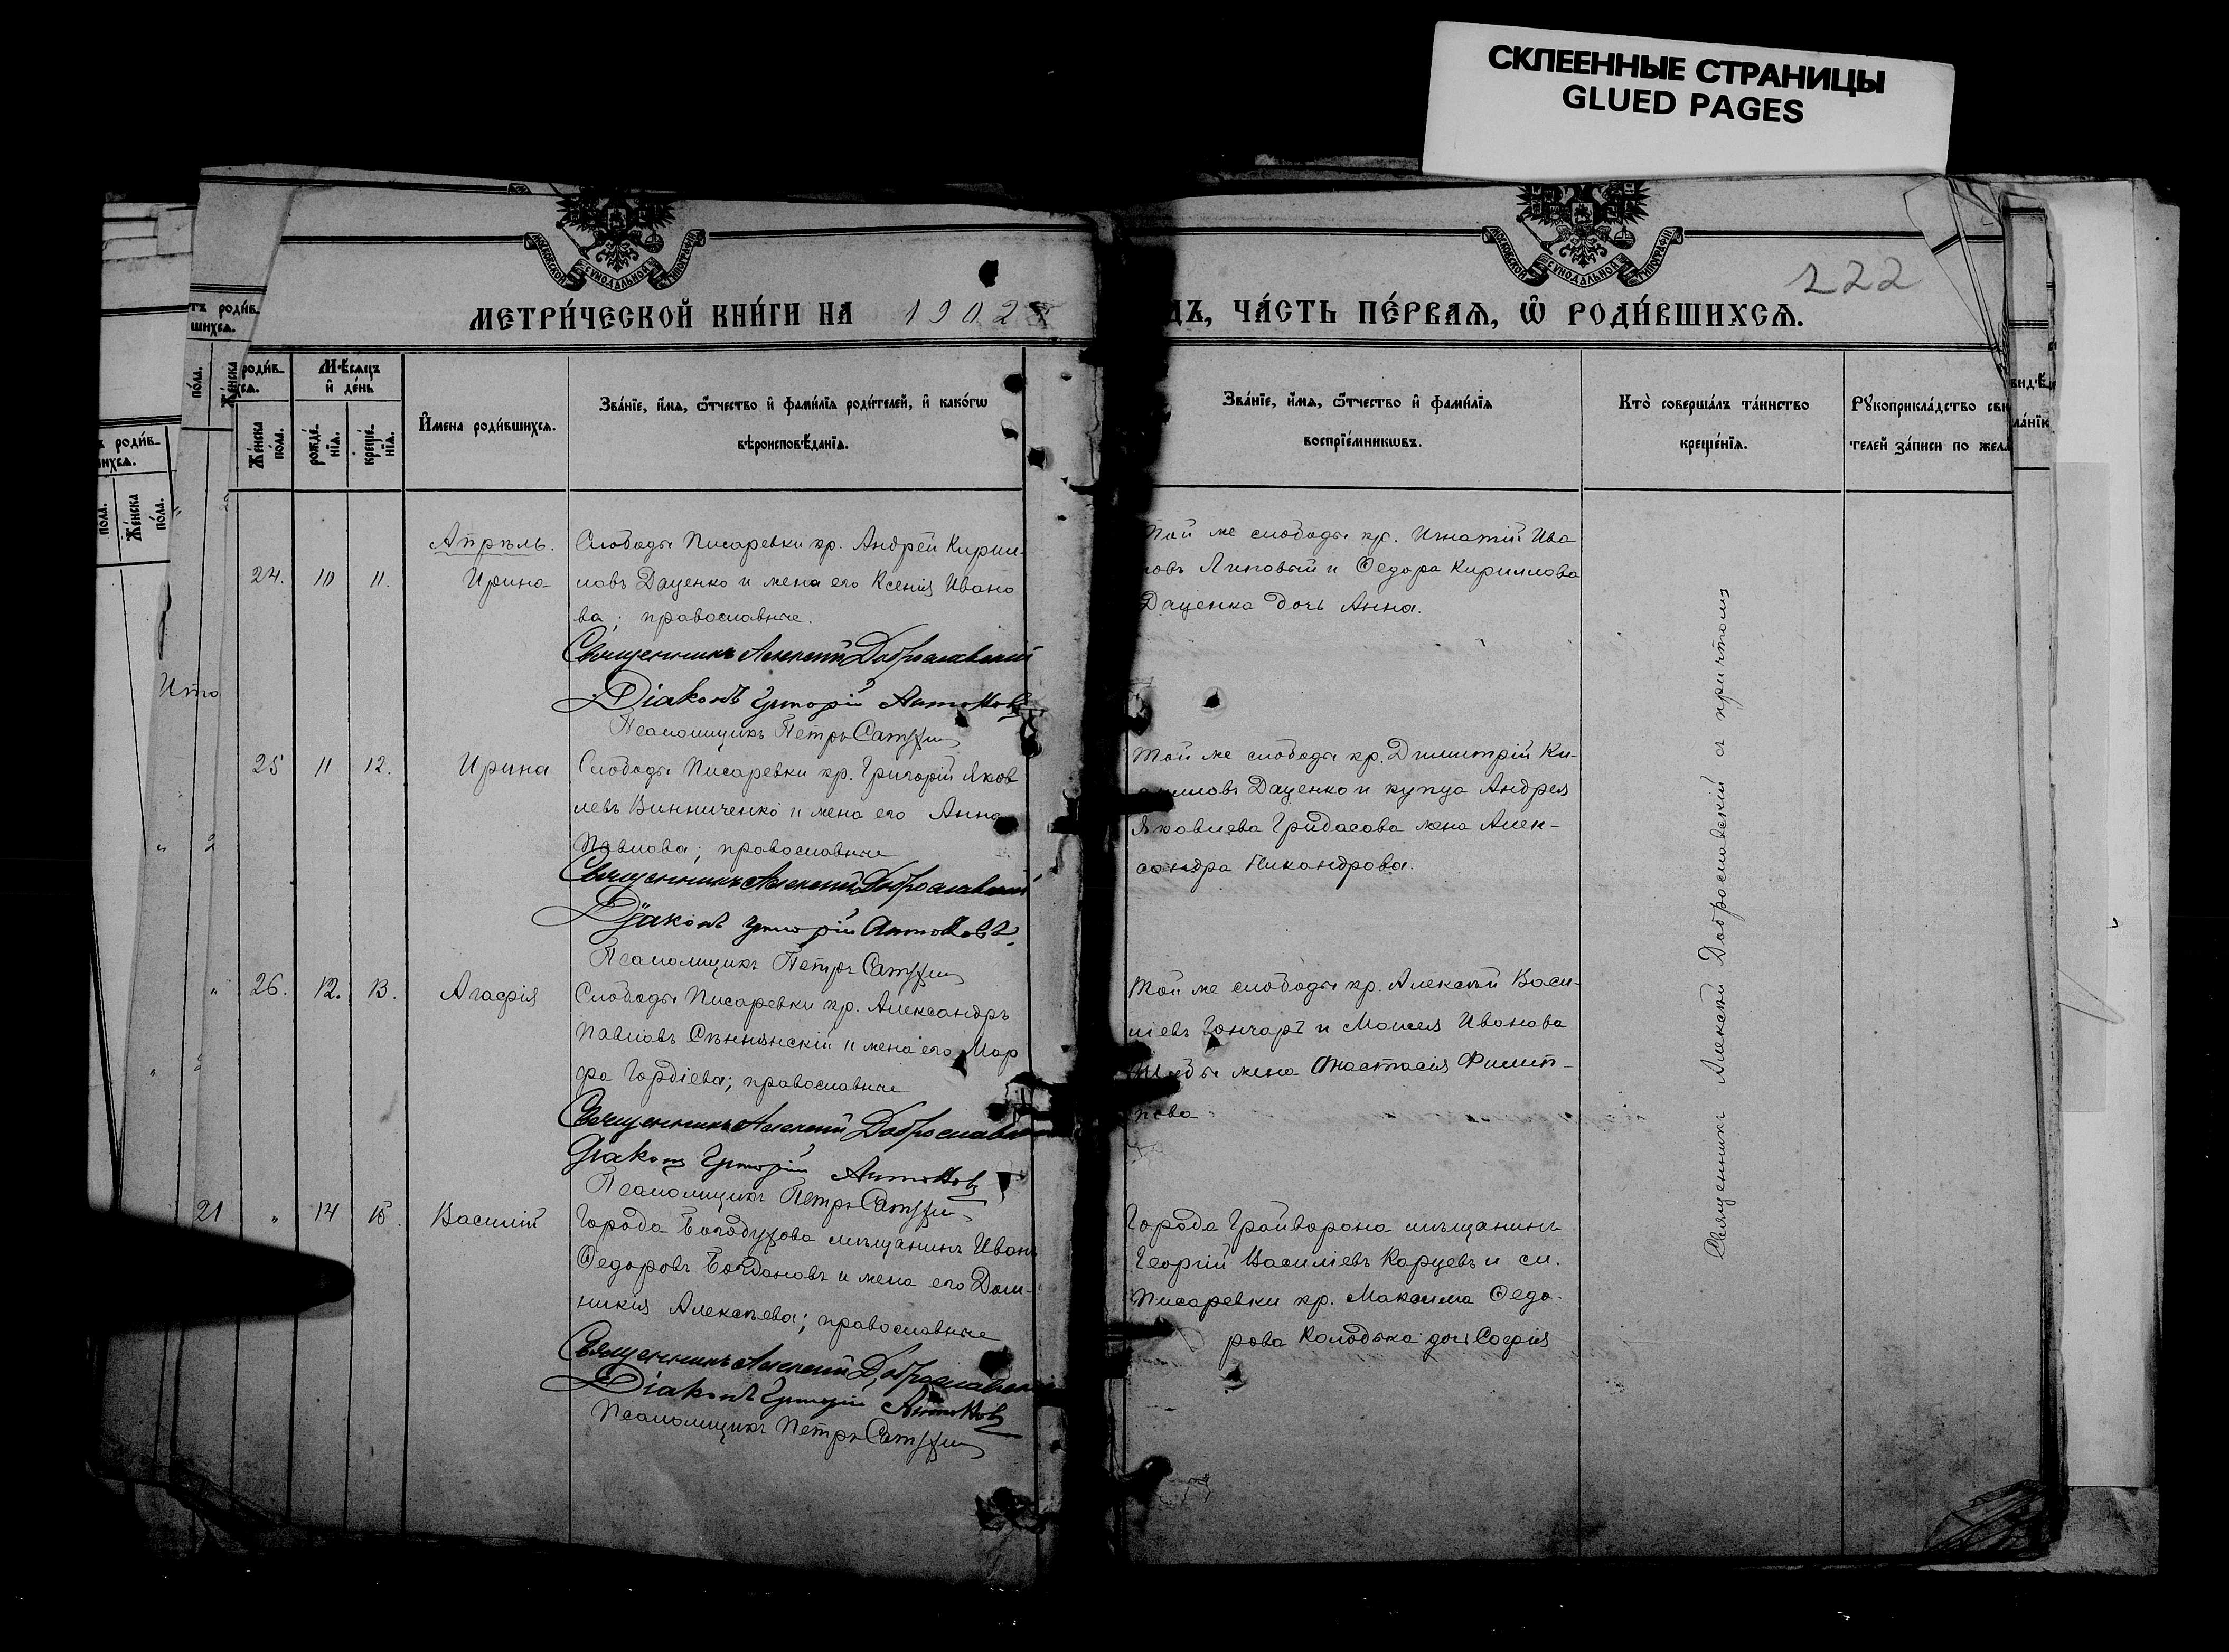 СКЛЕЕННЫЕ СТРАНИЦЫ
GLUED PAGES
МОСКОВСКОЙ СѴНОДАЛЬНОЙ ТИПОГРАФІИ
МОСКОВСКОЙ СѴНОДАЛЬНОЙ ТИПОГРАФІИ
222
МЕТРИ́ЧЕСКОЙ КНИ́ГИ НА 1902
ДЪ, ЧА́СТЬ ПЕ́РВАѦ, Ѽ РОДИ́ВШИХСѦ.
Мѣ́сяцъ и҆ де́нь
Же́нска по́ла.
рожде́нїя.
креще́нїя.
И҆мена роди́вшихся.
Зва́нїе, и҆́мя, ѻ҆́тчество и҆ фами́лїя роди́телей, и҆ како́гѡ
вѣроисповѣ́данїя.
Зва́нїе, и҆́мя, ѻ҆́тчество и҆ фами́лїя
воспрїе́мникѡвъ.
Кто̀ соверша́лъ та́инство
креще́нїя.
Рꙋкоприкла́дство сви
телей за́писи по жела
Апрѣль.
24. 10 11. Ирина
Слободы Писаревки кр. Андрей Кирил-
ловъ Даценко и жена его Ксенія Ивано
ва; православные.
Священникъ Алексій Доброславскій
Діаконъ Григорій Антоновъ
Псаломщикъ Петръ
Той же слободы кр. Игнатій Ива
новъ Липовый и Ѳедора Кириллова
Даценка дочь Анна.
25 11 12. Ирина
Слободы Писаревки кр. Григорій Яков
левъ Винниченко и жена его Анна
Павлова; православные
Священникъ Алексій Доброславскій
Діаконъ Григорій Антоновъ.
Псаломщикъ Петръ
Той же слободы кр. Димитрій Ки-
рилловъ Даценко и купца Андрея
Яковлева Гридасова жена Алек-
сандра Никандрова.
26. 12. 13. Агафія
Слободы Писаревки кр. Александръ
Павловъ Сѣннянскій и жена его Мар
фа Гордіева; православные
Священникъ Алексій Доброславскій
Діаконъ Григорій Антоновъ
Псаломщикъ Петръ
Той же слободы кр. Алексѣй Васи-
ліевъ Гончаръ и Моисея Иванова
жена Анастасія Филип-
пова
21 " 14 15. Василій
Города Богодухова мѣщанинъ Иванъ
Ѳедоровъ Богдановъ и жена его Дом-
никія Алексѣева; православные
Священникъ Алексій Доброславскій
Діаконъ Григорій Антоновъ
Псаломщикъ Петръ
Города Грайворона мѣщанинъ
Георгій Василіевъ Карцевъ и сл.
Писаревки кр. Максима Ѳедо-
рова Колодяка дочь Софія
Священникъ Алексѣй Доброславскій съ причтомъ
Ито